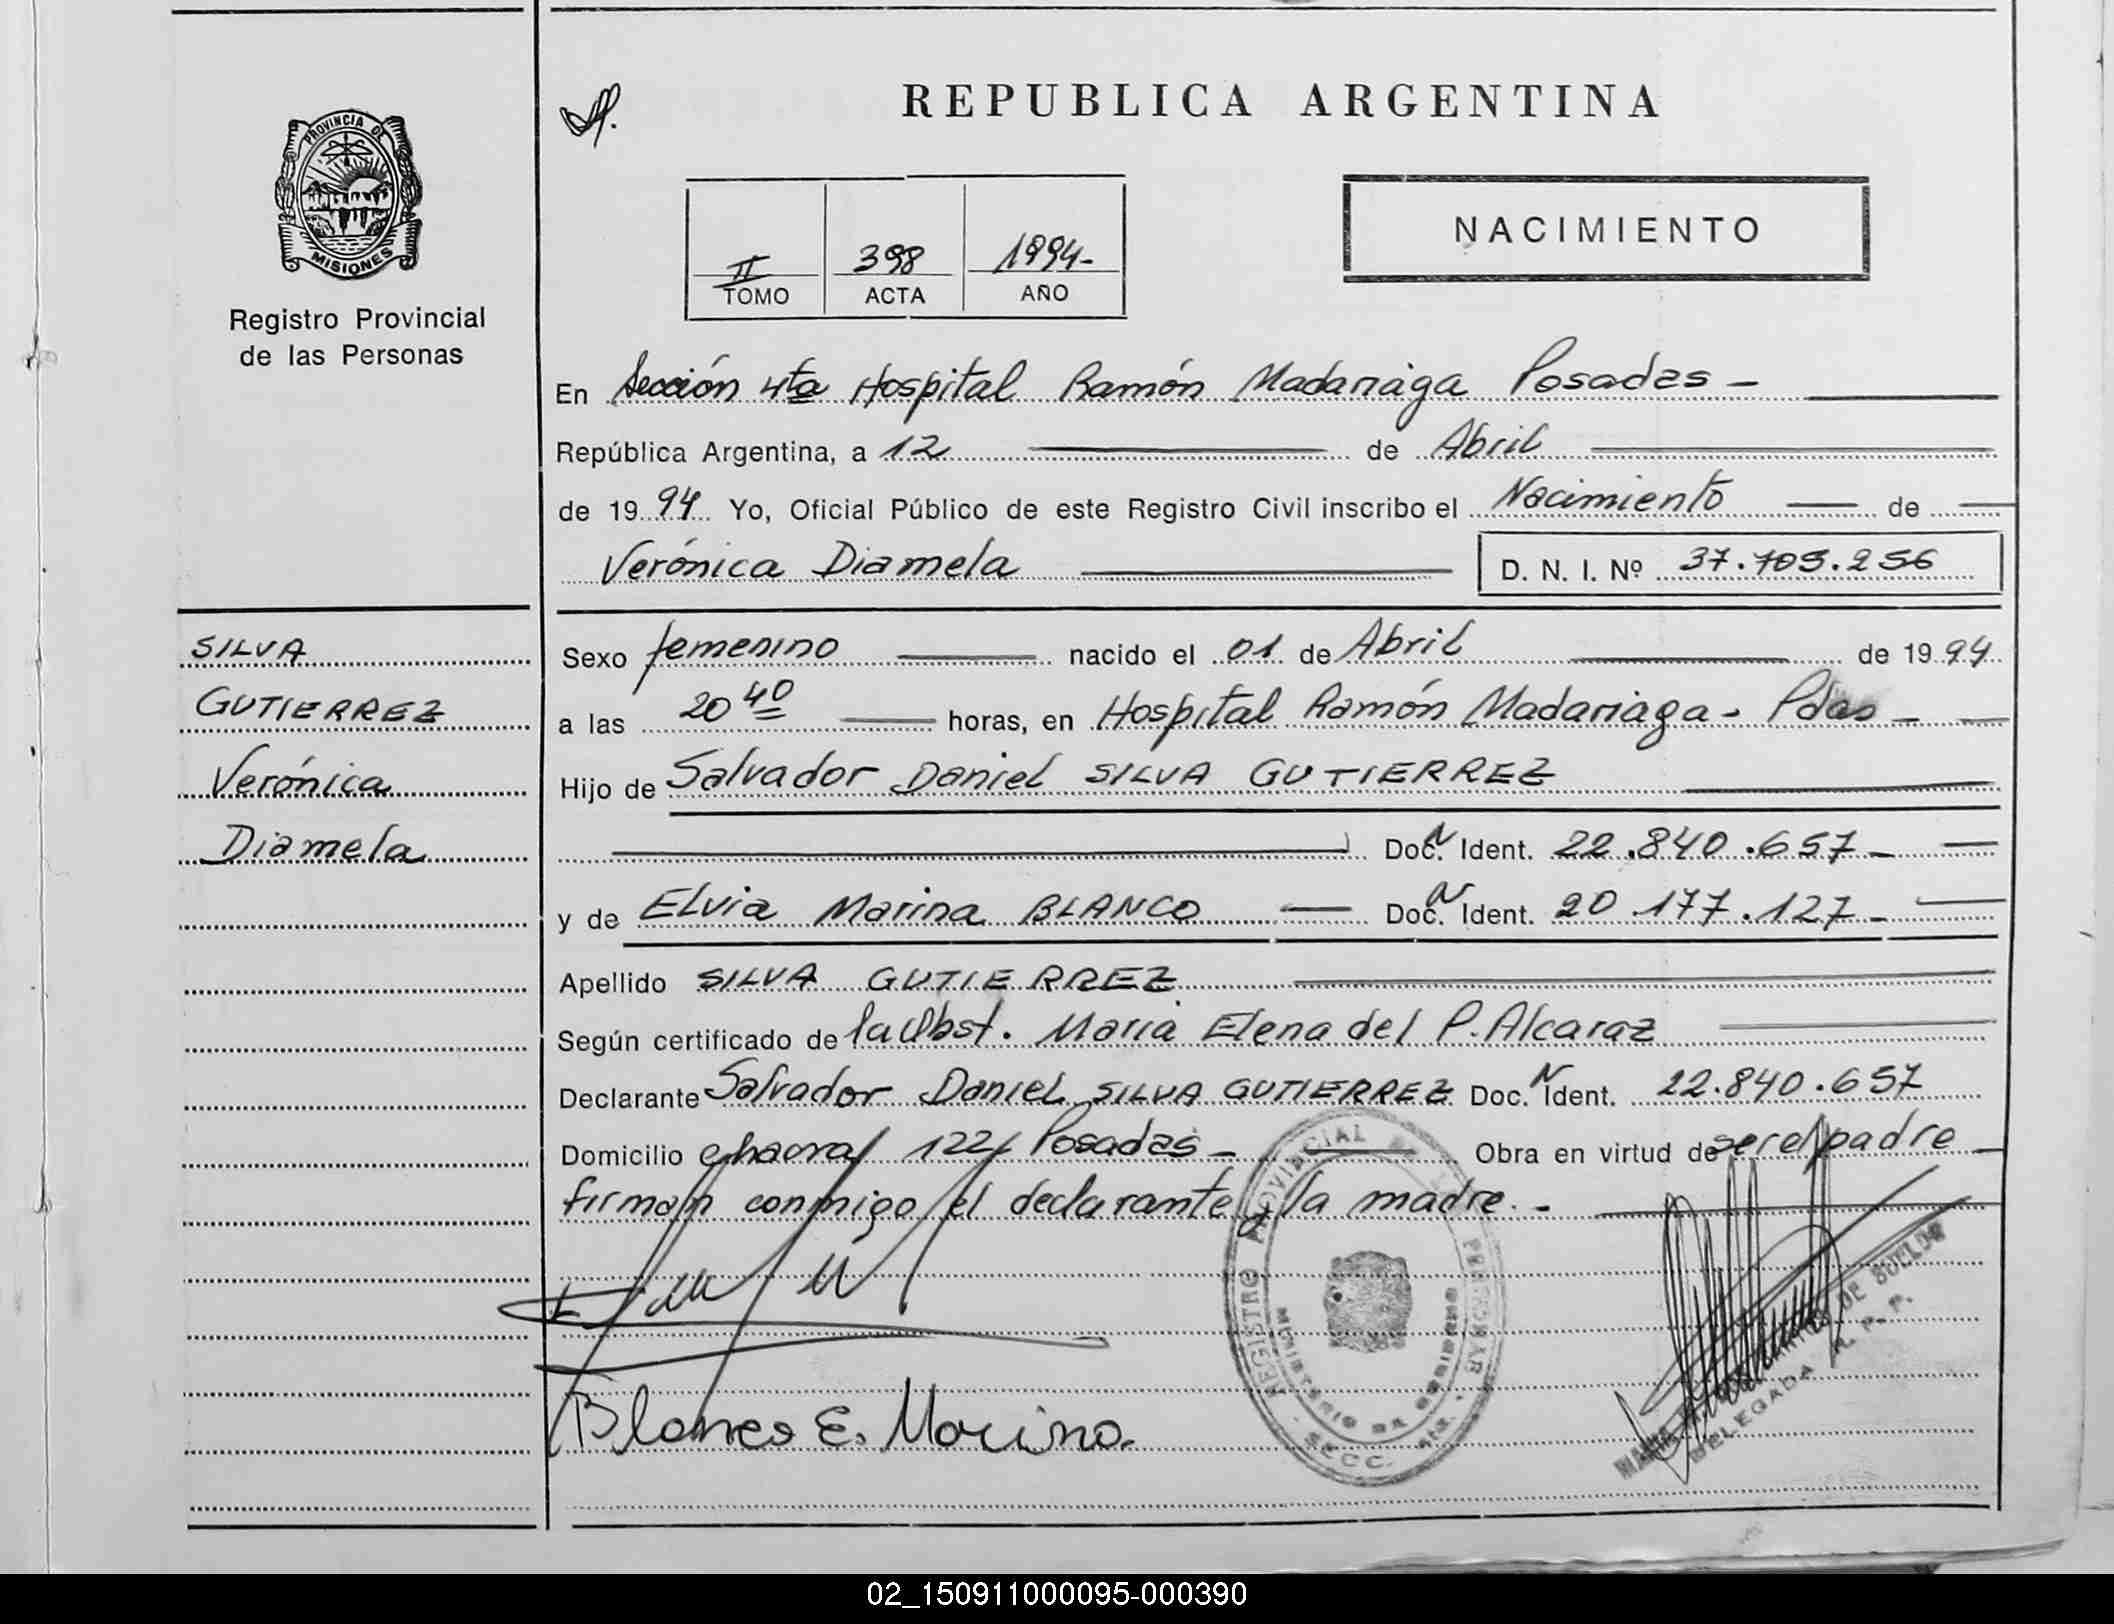 REPUBLICA ARGENTINA
PROVINCIA DE
MISIONES
Registro Provincial
de las Personas
II 398 1994-
TOMO ACTA AÑO
NACIMIENTO
En Sección 4ta Hospital Ramón Madariaga Posadas -
República Argentina, a 12 de Abril
de 1994 Yo, Oficial Público de este Registro Civil inscribo el Nacimiento de
Verónica Diamela D. N. I. Nº 37.705.256
SILVA
GUTIERREZ
Verónica
Diamela
Sexo femenino nacido el 01 de Abril de 1994
a las 20 40 horas, en Hospital Ramón Madariaga - Pdas -
Hijo de Salvador Daniel SILVA GUTIERREZ
Doc. N Ident. 22.840.657 -
y de Elvia Marina BLANCO Doc. N Ident. 20.177.127 -
Apellido SILVA GUTIERREZ
Según certificado de la Obst. Maria Elena del P. Alcaraz
Declarante Salvador Daniel SILVA GUTIERREZ Doc. N Ident. 22.840.657
Domicilio chacra 122 Posadas - Obra en virtud de ser el padre
firman conmigo el declarante y la madre. -
Blanco E. Marina.
REGISTRO PROVINCIAL DE LAS PERSONAS
MINISTERIO DE GOBIERNO
SECC.
DE SUELDO
DELEGADA R. P. P.
02_150911000095-000390